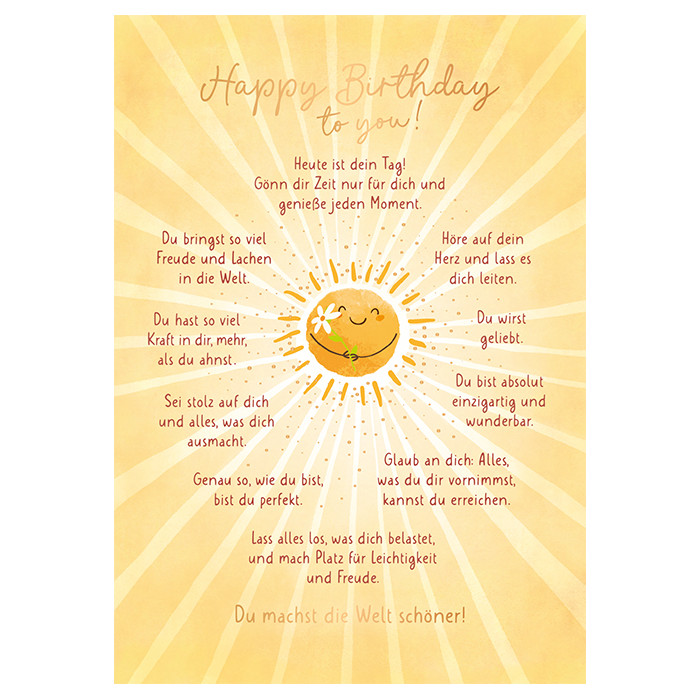 Happy Birthday
to you!
Heute ist dein Tag!
Gönn dir Zeit nur für dich und
genieße jeden Moment.
Du bringst so viel
Freude und Lachen
in die Welt.
Höre auf dein
Herz und lass es
dich leiten.
Du hast so viel
Kraft in dir, mehr,
als du ahnst.
Du wirst
geliebt.
Sei stolz auf dich
und alles, was dich
ausmacht.
Du bist absolut
einzigartig und
wunderbar.
Genau so, wie du bist,
bist du perfekt.
Glaub an dich: Alles,
was du dir vornimmst,
kannst du erreichen.
Lass alles los, was dich belastet,
und mach Platz für Leichtigkeit
und Freude.
Du machst die Welt schöner!